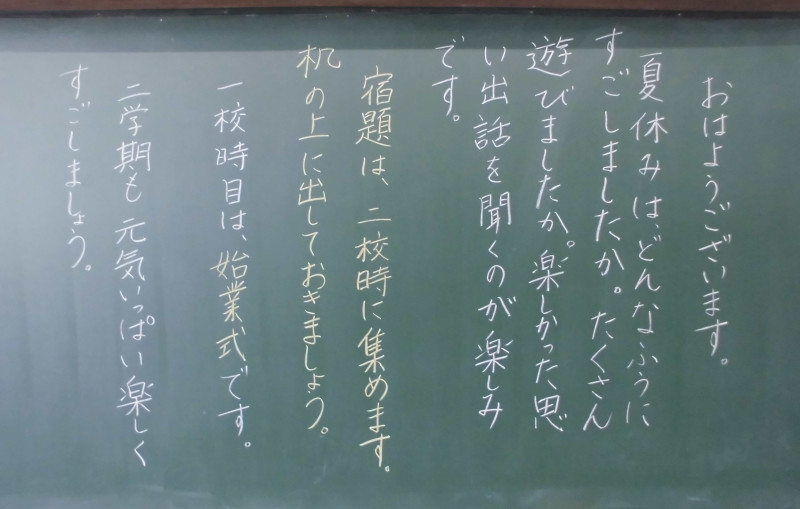 おはようございます。
夏休みは、どんなふうに
すごしましたか。たくさん
遊びましたか。楽しかった思
い出話を聞くのが楽しみ
です。
宿題は、二校時に集めます。
机の上に出しておきましょう。
一校時目は、始業式です。
二学期も元気いっぱい楽しく
すごしましょう。